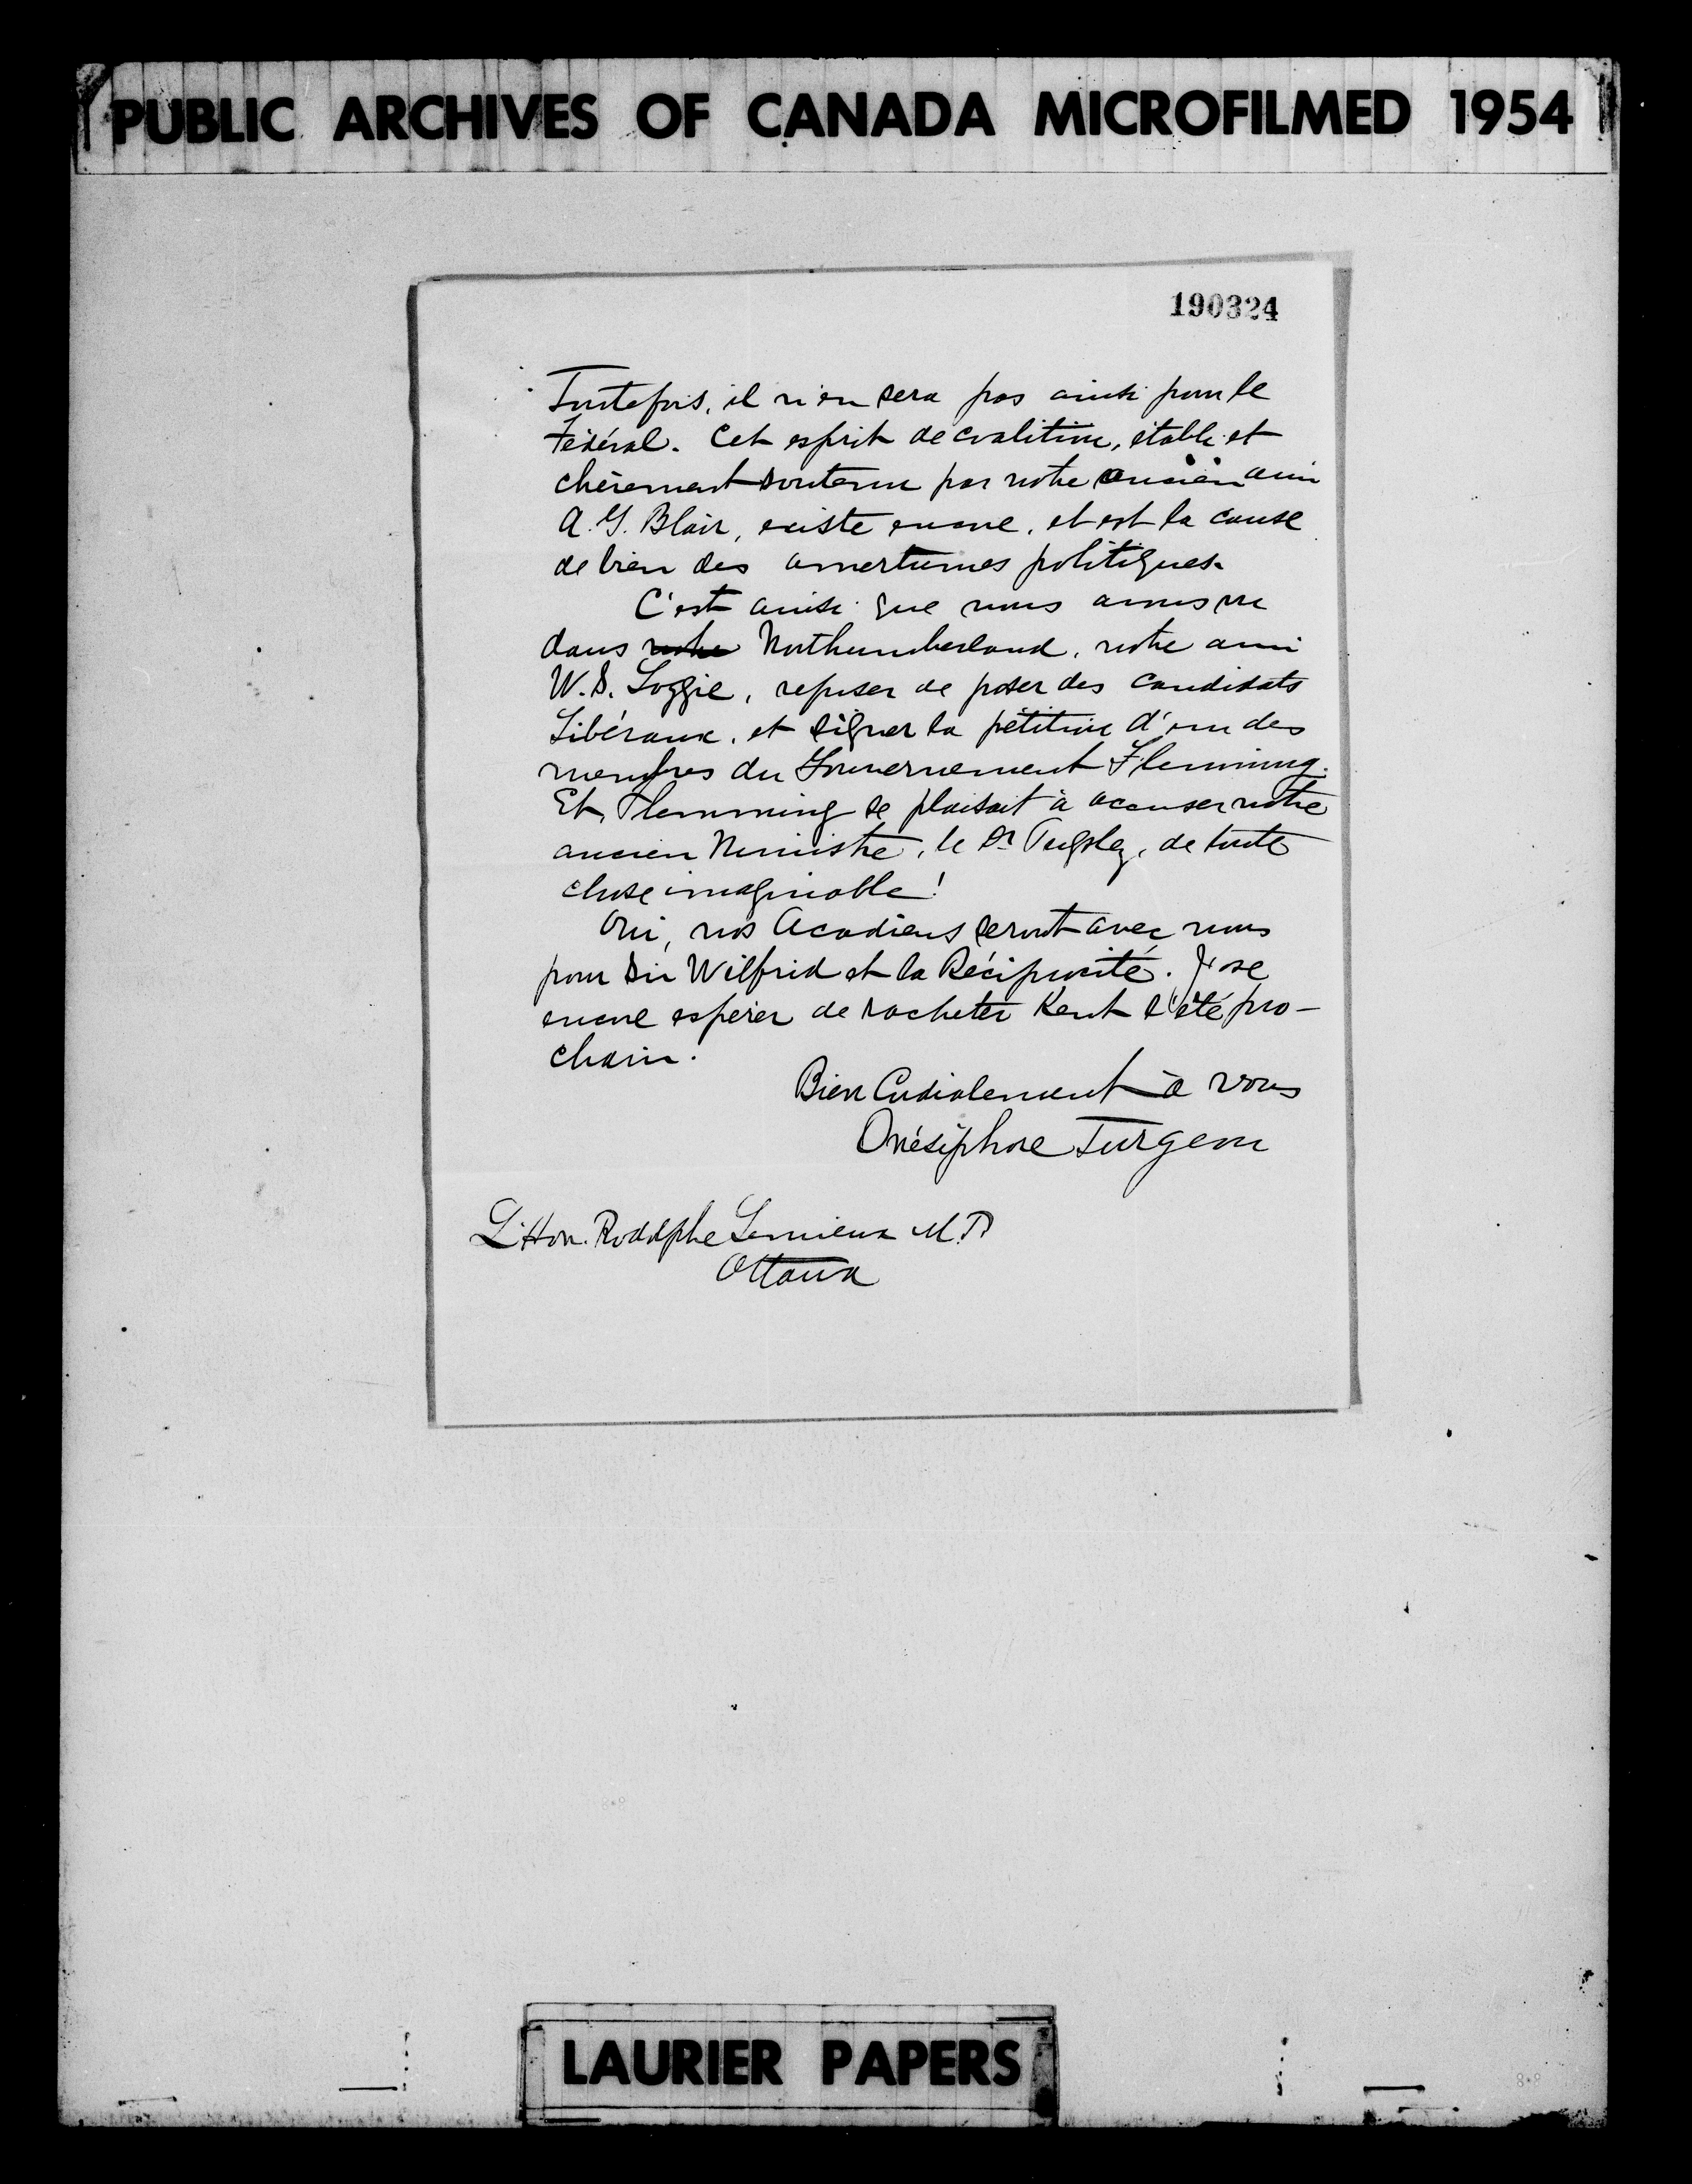 PUBLIC ARCHIVES OF CANADA MICROFILMED 1954
190324
Toutefois, il n'en sera pas ainsi pour le
Fédéral. Cet esprit de coalition, établi et
chèrement soutenu par notre ancien ami
A. G. Blair, existe encore, et est la cause
de bien des amertumes politiques.
C'est ainsi que nous avons vu
dans notre Northumberland, notre ami
W. S. Loggie, refuser de poser des candidats
Libéraux, et signer la pétition d'un des
membres du Gouvernement Flemming.
Et, Flemming se plaisait à accuser notre
ancien Ministre, le Dr Pugsley, de toute
chose imaginable!
Oui, nos Acadiens seront avec nous
pour Sir Wilfrid et la Réciprocité. J'ose
encore espérer de racheter Kent l'été pro-
chain.
Bien Cordialement à vous
Onésiphore Turgeon
L'Hon. Rodolphe Lemieux M.P.
Ottawa
LAURIER PAPERS